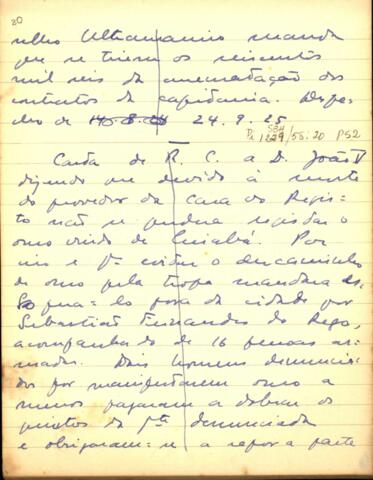 20
selho Ultramarino manda
que se tirem os seiscentos
mil reis da arrematação dos
contratos da capitania. Despa-
cho de 24.9.25
1829/55:20 PS2
Carta de R. C. a D. João V
dizendo que devido à morte
do provedor da Casa do Regis-
to não se pudera registar o
ouro vindo de Cuiabá. Por
isso e pa evitar o descaminho
de ouro pela tropa mandara es-
pera-lo fora da cidade por
Sebastião Fernandes do Rego,
acompanhado de 16 pessoas ar-
madas. Dois homens denuncia-
dos por manifestarem ouro a
menos pagaram a dobrar os
quintos da pte denunciada
e obrigaram-se a repor a parte